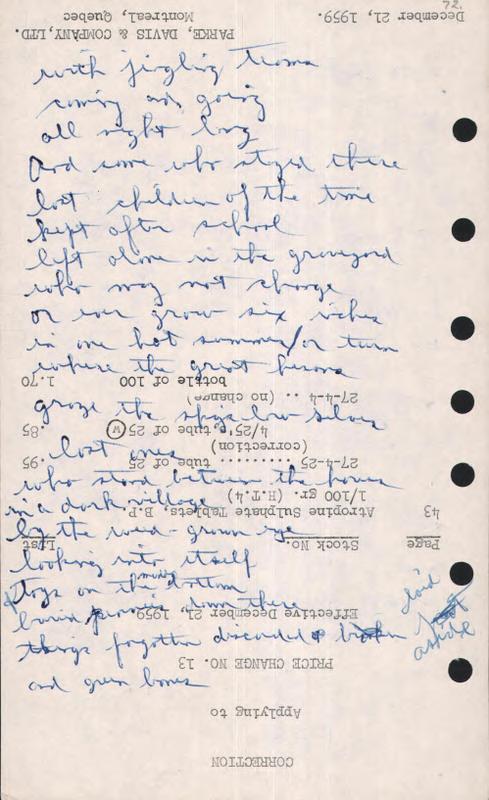 with jingling teams
coming and going
all night long
And some who stayed there
lost children of the time
kept after school
left alone in the graveyard
who may not change
or ever grow six inches
in one hot summer / or turn
where the great herons
graze the sky's low silver
lost ones
who stand between the hours
in a dark village
by the weed-grown eye
looking into itself
toys on the muddy bottom
down there
things forgotten discarded & broken
laid
aside
and green bones
72.
CORRECTION
Applying to
PRICE CHANGE NO. 13
Effective December 21, 1959
Page Stock No. List
43 Atropine Sulphate Tablets, B.P.
1/100 gr. (H.T.4)
27-4-25 ......... tube of 25 .95
(correction)
4/25's, tube of 25 W .85
27-4-4 .. (no change)
bottle of 100 1.70
PARKE, DAVIS & COMPANY, LTD.
Montreal, Quebec
December 21, 1959.